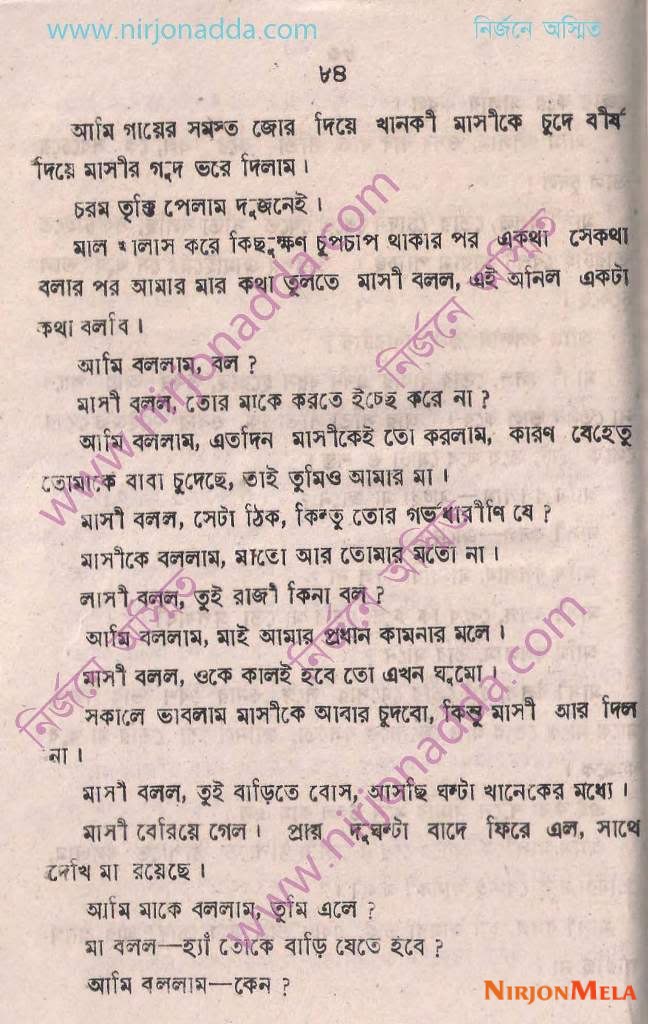 www.nirjonadda.com নির্জনে অস্মিত
৮৪
আমি গায়ের সমস্ত জোর দিয়ে খানকী মাসীকে চুদে বীর্য
দিয়ে মাসীর গুদ ভরে দিলাম।
চরম তৃপ্তি পেলাম দুজনেই।
মাল খালাস করে কিছুক্ষণ চুপচাপ থাকার পর একথা সেকথা
বলার পর আমার মার কথা তুলতে মাসী বলল, এই অনিল একটা
কথা বলবি।
আমি বললাম, বল?
মাসী বলল, তোর মাকে করতে ইচেছ করে না?
আমি বললাম, এতদিন মাসীকেই তো করলাম, কারণ যেহেতু
তোমাকে বাবা চুদেছে, তাই তুমিও আমার মা।
মাসী বলল, সেটা ঠিক, কিন্তু তোর গর্ভধারীণি যে?
মাসীকে বললাম, মাতো আর তোমার মতো না।
লাসী বলল, তুই রাজী কিনা বল?
আমি বললাম, মাই আমার প্রধান কামনার মলে।
মাসী বলল, ওকে কালই হবে তো এখন ঘুমো।
সকালে ভাবলাম মাসীকে আবার চুদবো, কিন্তু মাসী আর দিল
না।
মাসী বলল, তুই বাড়িতে বোস, আসছি ঘণ্টা খানেকের মধ্যে।
মাসী বেরিয়ে গেল। প্রায় দুঘণ্টা বাদে ফিরে এল, সাথে
দেখি মা রয়েছে।
আমি মাকে বললাম, তুমি এলে?
মা বলল—হ্যাঁ তোকে বাড়ি যেতে হবে?
আমি বললাম—কেন?
www.nirjonadda.com
নির্জনে অস্মিত
নির্জনে অস্মিত
নির্জনে অস্মিত
www.nirjonadda.com
NIRJONMELA